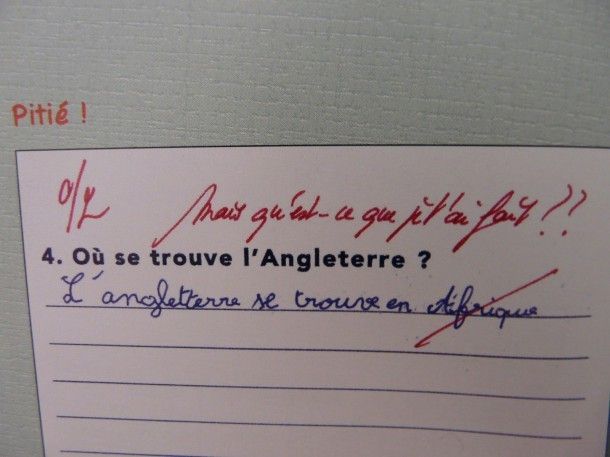 Pitié !
0/2 Mais qu'est-ce que je t'ai fait ??
4. Où se trouve l'Angleterre ?
L'angletterre se trouve en Afrique